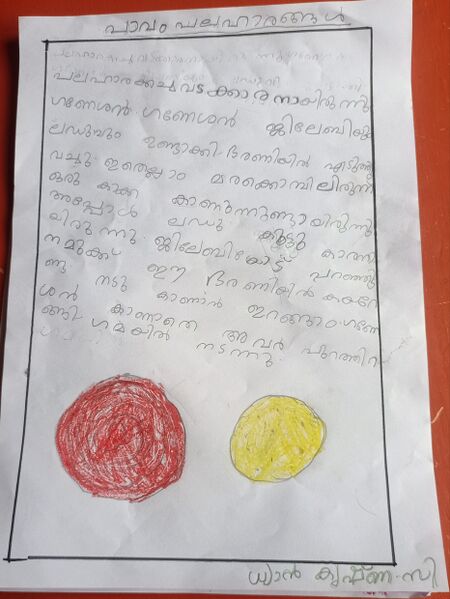 പാവം പലഹാരങ്ങൾ
പലഹാരക്കച്ചവടക്കാരനായിരുന്നു
ഗണേശൻ. ഗണേശൻ ജിലേബിയും
ലഡുവും ഉണ്ടാക്കി. ഭരണിയിൽ എടുത്തു
വച്ചു. ഇതെല്ലാം മരക്കൊമ്പിലിരുന്ന്
ഒരു കാക്ക കാണുന്നുണ്ടായിരുന്നു
അപ്പോൾ ലഡു കൂട്ടു കാരനാ
യിരുന്നു. ജിലേബിയോട് പറഞ്ഞു
നമുക്ക് ഈ ഭരണിയിൽ കയറേ
ണ്ട നാടു കാണാൻ ഇറങ്ങാം. ഗണേ
ശൻ കാണാതെ അവർ പുറത്തിറ
ങ്ങി. ഗമയിൽ നടന്നു.
ധ്യാൻ കൃഷ്ണ. സി